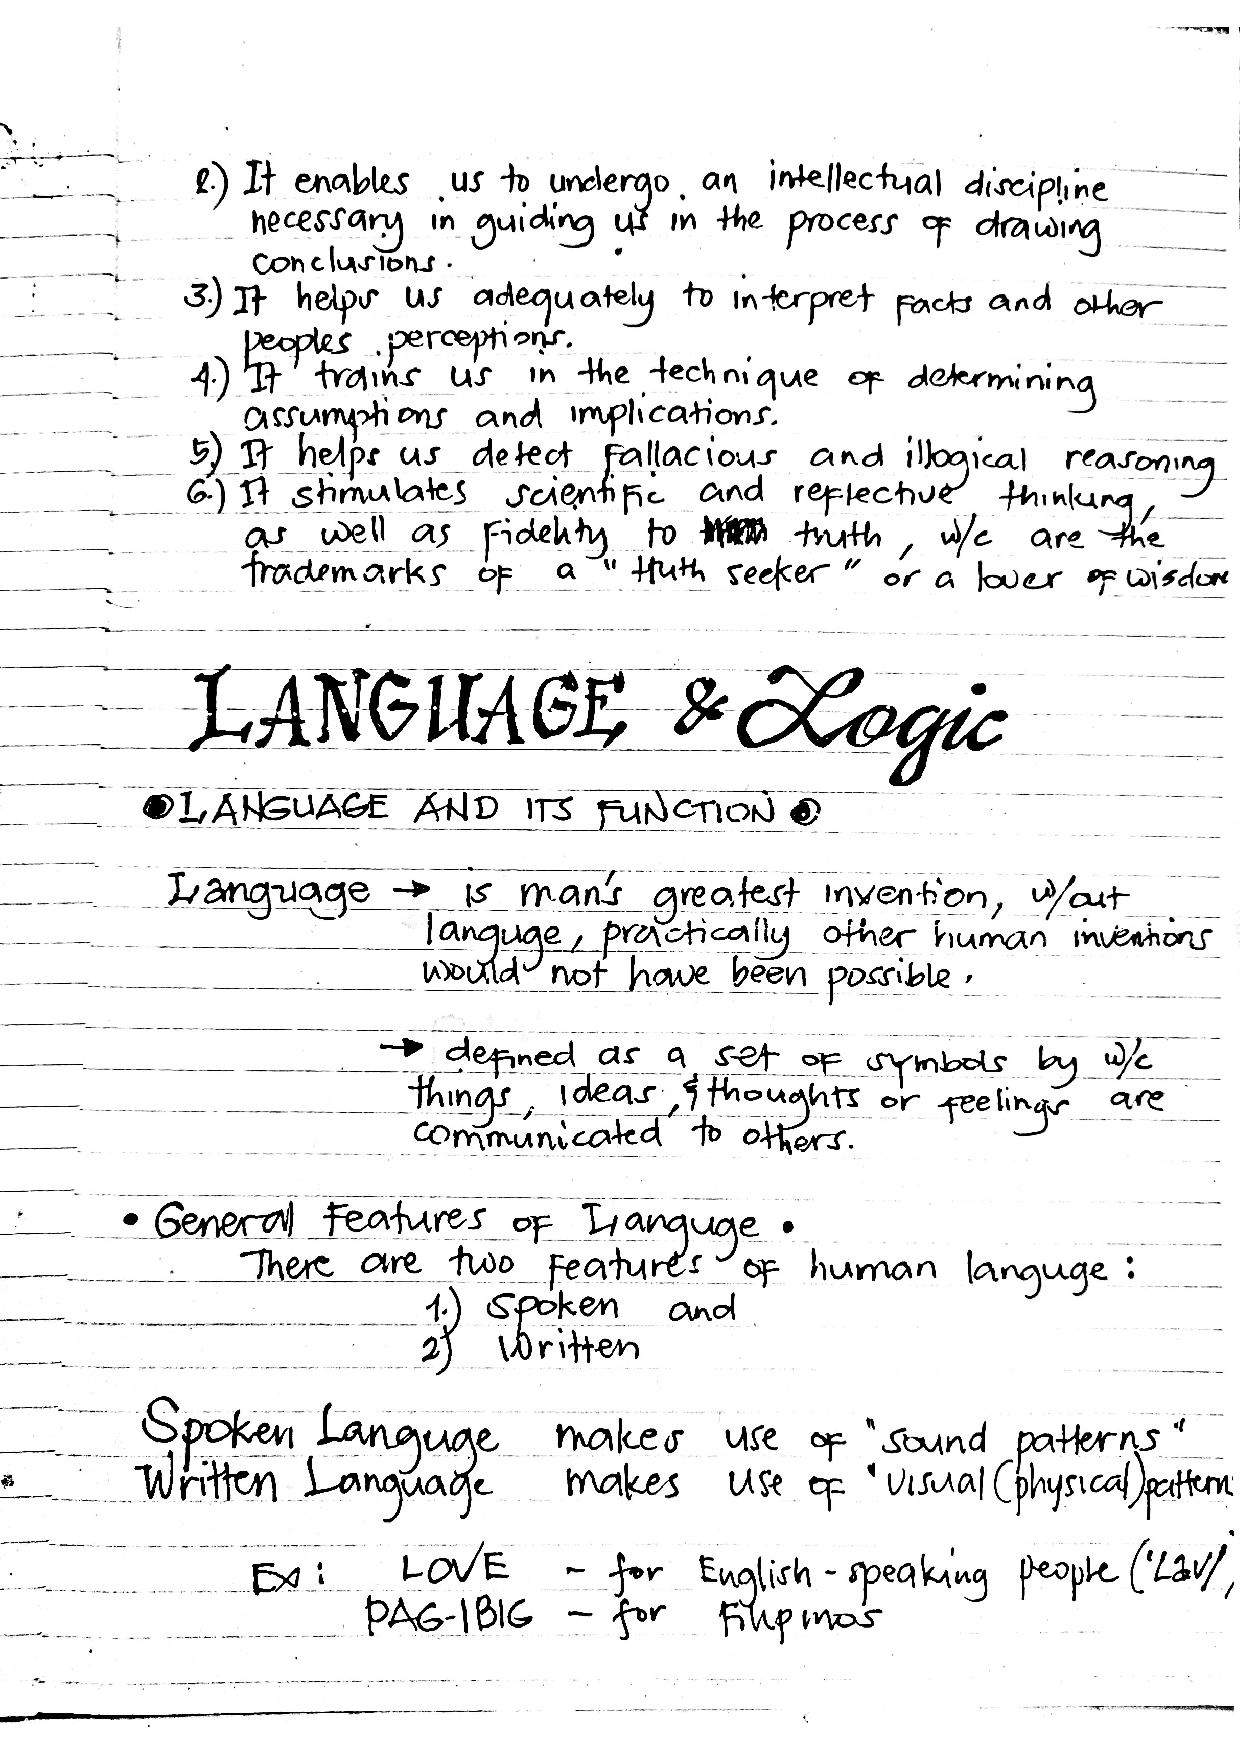 2.) It enables us to undergo an intellectual discipline
necessary in guiding us in the process of drawing
conclusions.
3.) It helps us adequately to interpret facts and other
peoples perceptions.
4.) It trains us in the technique of determining
assumptions and implications.
5) It helps us detect fallacious and illogical reasoning
6.) It stimulates scientific and reflective thinking,
as well as fidelity to truth, w/c are the
trademarks of a "truth seeker" or a lover of wisdom
LANGUAGE & Logic
LANGUAGE AND ITS FUNCTION
Language → is man's greatest invention, w/out
languge, practically other human inventions
would not have been possible.
→ defined as a set of symbols by w/c
things, ideas, & thoughts or feelings are
communicated to others.
• General Features of Languge •
There are two features of human languge:
1.) Spoken and
2) Written
Spoken Languge makes use of "sound patterns"
Written Language makes use of "visual (physical) pattern
Ex: LOVE - for English-speaking people ('Lav/,
PAG-IBIG - for Filipinos